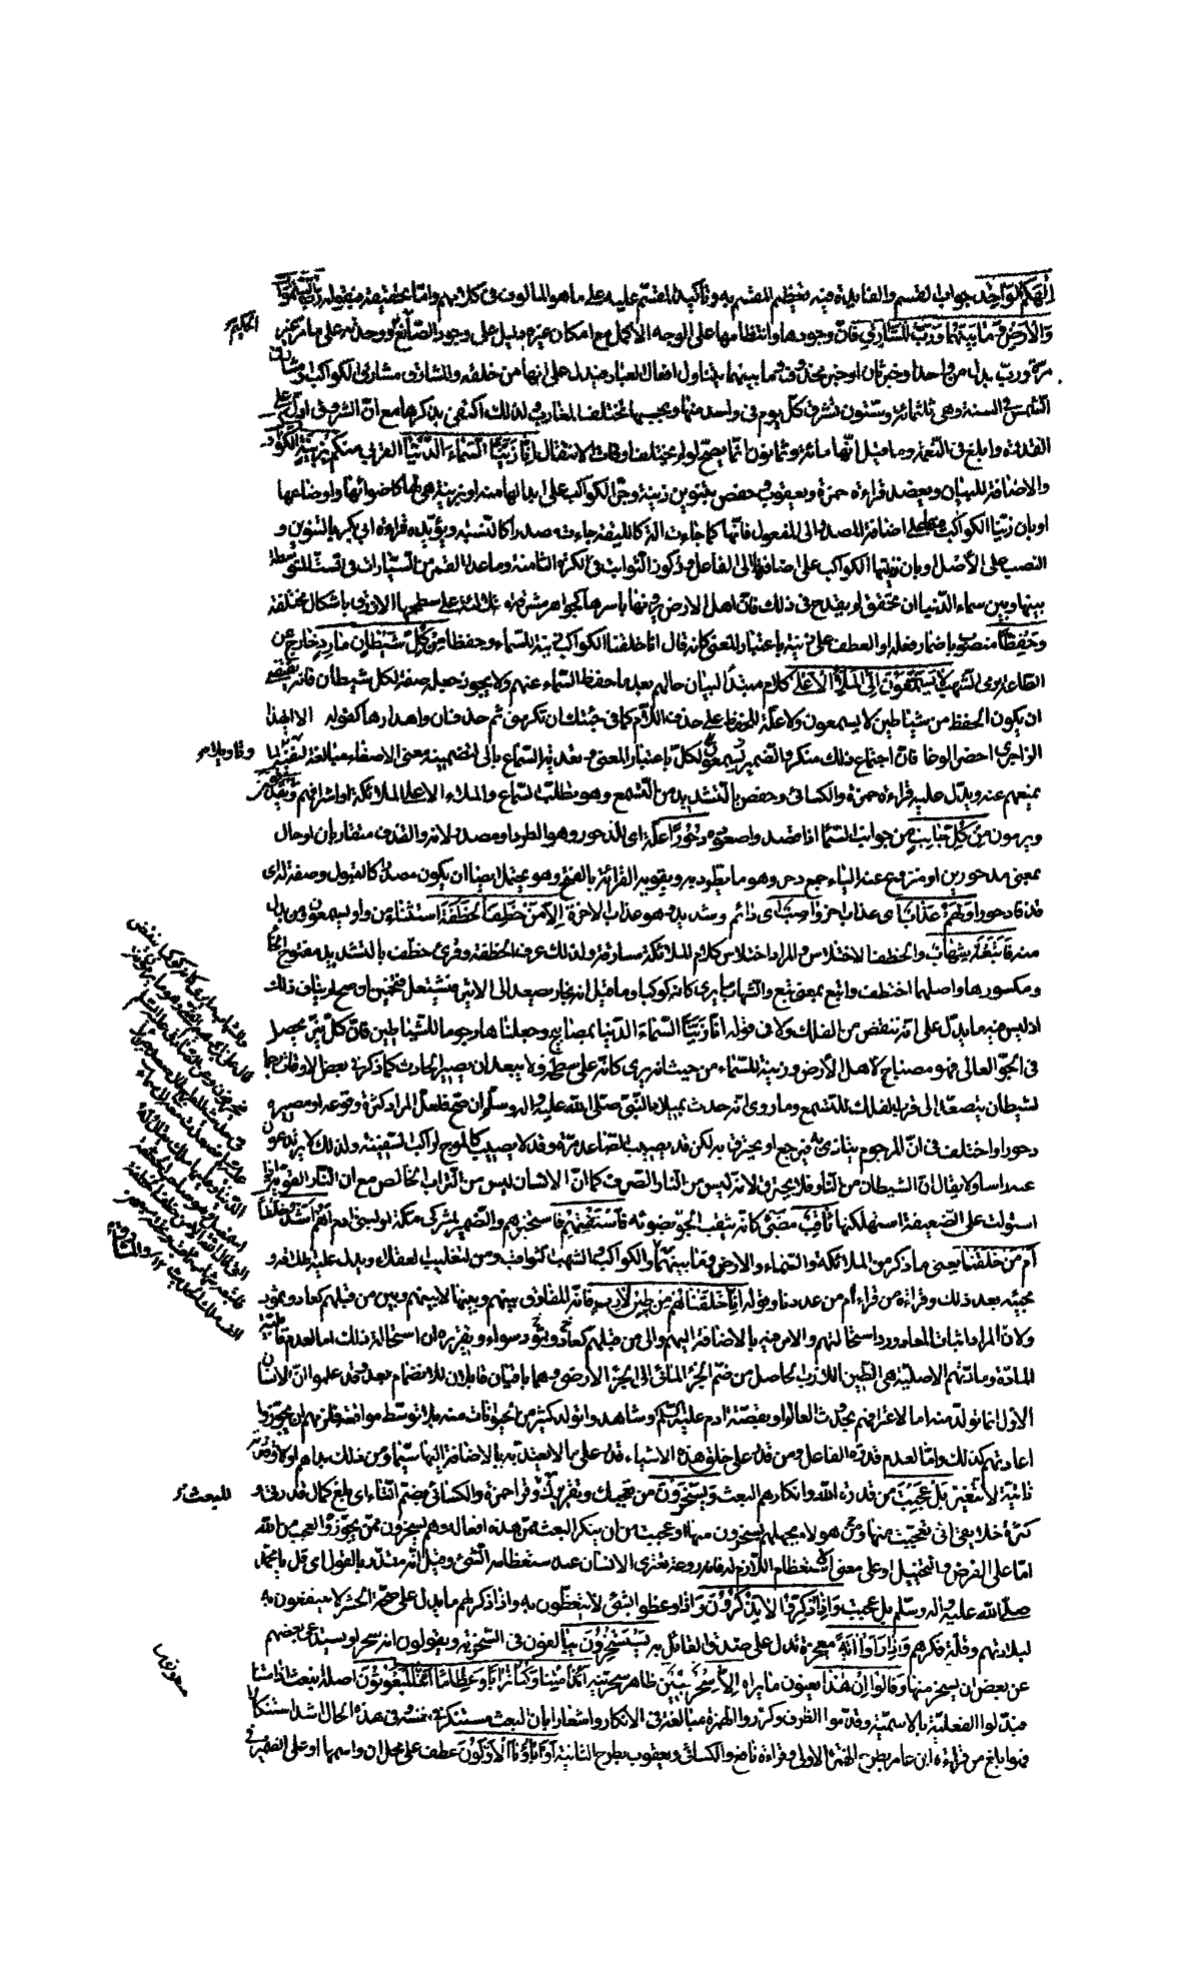 إلهكم لواحد جواب للقسم والفايدة فيه تعظيم المقسم به وتأكيد المقسم عليه على ما هو المألوف في كلامهم واما تحقيقه فبقوله رب السموات
والأرض وما بينهما ورب المشارق فان وجودها وانتظامها على الوجه الاكمل مع امكان غيره دليل على وجود الصانع ووحدته على ما مر غير
الحكيم
مرة ورب بدل من واحد او خبر ثان او خبر محذوف وما بينهما يتناول افعال العباد فيدل على انها من خلقه والمشارق مشارق الكواكب او مشارق
الشمس في السنة وهي ثلثمائة وستون تشرق كل يوم في واحد منها وبحسبها تختلف المغارب ولذلك اكتفى بذكرها مع ان الشروق ادل على
القدرة وابلغ في النعمة وما قيل انها مائة وثمانون انما يصح لو لم يختلف اوقات الانتقال إنا زينا السماء الدنيا القربى منكم بزينة الكواكب
والاضافة للبيان ويعضده قراءة حمزة ويعقوب وحفص بتنوين زينة وجر الكواكب على ابدالها منه او بزينة هي لها كاضوائها واوضاعها
او بان زينا الكواكب فيها على اضافة المصدر الى المفعول فانها كما جاءت اسما كالليقة جاءت مصدرا كالنسبة ويؤيده قراءة ابي بكر بالتنوين و
النصب على الأصل او بان زينتها الكواكب على اضافتها الى الفاعل وركوز الثوابت في الكرة الثامنة وما عدا القمر من السيارات في الست المتوسطة
بينها وبين سماء الدنيا ان تحقق لم يقدح في ذلك فان اهل الارض يرونها باسرها كجواهر مشرقة متلألئة على سطحها الازرق باشكال مختلفة
وحفظا منصوب باضمار فعله او العطف على زينة باعتبار المعنى كانه قال انا خلقنا الكواكب زينة للسماء وحفظا من كل شيطان مارد خارج عن
الطاعة برمي الشهب لا يسمعون إلى الملأ الأعلى كلام مبتدأ لبيان حالهم بعد ما حفظ السماء عنهم ولا يجوز جعله صفة لكل شيطان فانه يقتضي
ان يكون الحفظ من شياطين لا يسمعون ولا علة للحفظ على حذف اللام كما في جئتك ان تكرمني ثم حذف ان واهدارها كقوله الا ايهذا
الزاجري احضر الوغا فان اجتماع ذلك منكر والضمير لكل باعتبار المعنى وتعدية السماع بالى لتضمينه معنى الاصغاء مبالغة لنفيه وتهويلا لما
يمنعهم عنه ويدل عليه قراءة حمزة والكسائي وحفص بالتشديد من التسمع وهو طلب السماع والملاء الاعلى الملائكة او اشرافهم ويقذفون
ويرمون من كل جانب من جوانب السماء اذا قصدوا صعوده دحورا علة اي للدحور وهو الطرد او مصدر لانه والقذف متقاربان او حال
بمعنى مدحورين او منزوع عنه الباء جمع دحر وهو ما يطرد به ويقويه القراءة بالفتح وهو يحتمل ايضا ان يكون مصدرا كالقبول او صفة له اي
قذفا دحورا ولهم عذاب اي عذاب اخر واصب اي دائم او شديد وهو عذاب الاخرة إلا من خطف الخطفة استثناء من واو يسمعون ومن بدل
منه فأتبعه شهاب والخطف الاختلاس والمراد اختلاس كلام الملائكة مسارقة ولذلك عرف الخطفة وقرئ خطف بالتشديد مفتوح الخاء
ومكسورها واصلها اختطف واتبع بمعنى تبع والشهاب ما يرى كانه كوكبا وما قيل انه بخار يصعد الى الاثير فيشتعل فتخمين ان صح لم يناف ذلك
اذ ليس فيه ما يدل على انه ينقض من الفلك ولا في قوله انا زينا السماء الدنيا بمصابيح وجعلناها رجوما للشياطين فان كل نير يحصل
في الجو العالي فهو مصباح لاهل الأرض وزينة للسماء من حيث انه يرى كانه على سطحه ولا يبعد ان يصير الحادث كما ذكر في بعض الاوقات رجما
لشيطان يتصعد الى قرب الفلك للتسمع وما روى انه حدث بميلاد النبي صلى الله عليه واله وسلم ان صح فلعل المراد كثرة وقوعه او مصيره
دحورا واختلف في ان المرجوم يتاذى به فيرجع او يحترق به لكن قد يصيب الصاعد مرة وقد لا يصيب كالموج لراكب السفينة ولذلك لا يرتدعون
عنه راسا ولا يقال ان الشيطان من النار فلا يحترق لانه ليس من النار الصرف كما ان الانسان ليس من التراب الخالص مع ان النار القوية اذا
استولت على الضعيفة استهلكتها ثاقب مضئ كانه يثقب الجو بضوئه فاستفتهم فاستخبرهم والضمير لمشركي مكة او لبني ادم أهم أشد خلقا
أم من خلقنا يعني ما ذكر من الملائكة والسماء والارض وما بينهما والكواكب والشهب الثواقب ومن لتغليب العقلاء ويدل عليه اطلاقه و
مجيئه بعد ذلك وقراءة من قرأ ام من عددنا وقوله إنا خلقناهم من طين لازب فانه الفارق بينهم وبينها لا بينهم وبين من قبلهم كعاد وثمود
ولان المراد اثبات المعاد ورد استحالتهم والامر فيه بالاضافة اليهم والى من قبلهم كعاد وثمود سواء وتقريره ان استحالة ذلك اما لعدم قابلية
المادة ومادتهم الاصلية هي الطين اللازب الحاصل من ضم الجزء المائي الى الجزء الارضي وهما باقيان قابلان للانضمام بعد وقد علموا ان الانسان
الاول انما تولد منه اما لاعترافهم بحدوث العالم او بقصة ادم عليه السلم وشاهدوا تولد كثير من الحيوانات منه بلا توسط مواقعة فلزمهم ان يجوزوا
اعادتهم كذلك واما لعدم قدرة الفاعل ومن قدر على خلق هذه الاشياء قدر على ما لا يعتد به بالاضافة اليها سيما ومن ذلك بداهم اولا وقدرته
ذاتية لا تتغير بل عجبت من قدرة الله وانكارهم البعث ويسخرون من تعجبك وتقريرك وقرا حمزة والكسائي بضم التاء اي بلغ كمال قدرتي و
للبعث
كثرة خلايقي اني تعجبت منها وهؤلاء بجهلهم يسخرون منها او عجبت من ان ينكر البعث ممن هذه افعاله وهم يسخرون ممن يجوزه والعجب من الله
اما على الفرض والتخييل او على معنى الاستعظام اللازم له فانه روعة تعتري الانسان عند استعظامه الشئ وقيل انه مقدر بالقول اي قل يا محمد
صلى الله عليه واله وسلم بل عجبت وإذا ذكروا لا يذكرون واذا وعظوا بشئ لا يتعظون به واذا ذكر لهم ما يدل على صحة الحشر لا ينتفعون به
لبلادتهم وقلة فكرهم وإذا رأوا آية معجزة تدل على صدق القائل به يستسخرون يبالغون في السخرية ويقولون انه سحر او يستدعي بعضهم
عن بعض ان يسخر منها وقالوا إن هذا يعنون ما يرونه إلا سحر مبين ظاهر سحريته أئذا متنا وكنا ترابا وعظاما أئنا لمبعوثون اصله انبعث اذا متنا
فبدلوا الفعلية بالاسمية وقدموا الظرف وكرروا الهمزة مبالغة في الانكار واشعارا بان البعث مستنكر في نفسه وفي هذه الحال اشد استنكارا
فهو ابلغ من قراءة ابن عامر بطرح الهمزة الاولى وقراءة نافع والكسائي ويعقوب بطرح الثانية أو آباؤنا الأولون عطف على محل ان واسمها او على الضمير في